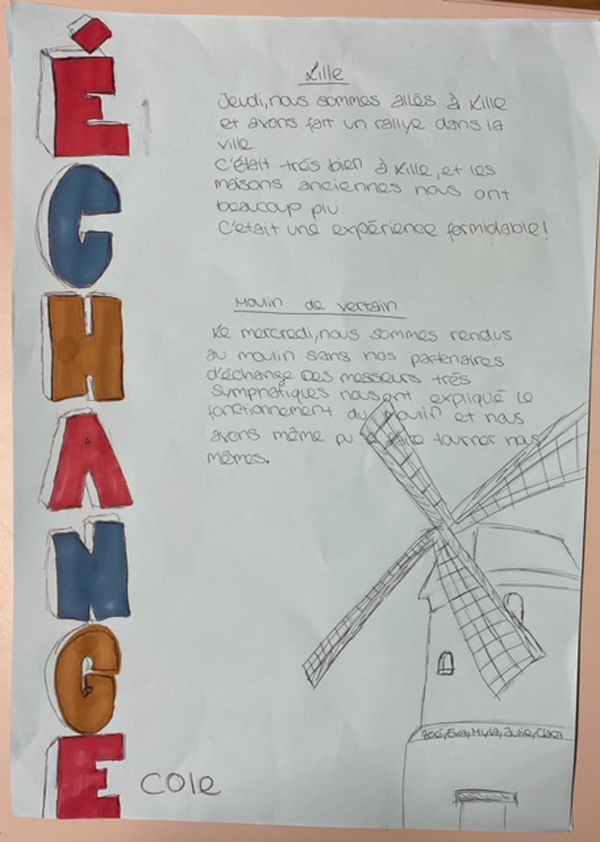 ÉCHANGE
Lille
Jeudi, nous sommes allés à Lille
et avons fait un rallye dans la
ville.
C'était très bien à Lille, et les
maisons anciennes nous ont
beaucoup plu.
C'était une expérience formidable!
Moulin de vertain
Le mercredi, nous sommes rendus
au moulin sans nos partenaires
d'échange. Des messieurs très
sympathiques nous ont expliqué le
fonctionnement du moulin et nous
avons même pu le faire tourner nous
mêmes.
Zoé, Eva, Myla, Julie, Clara
cole